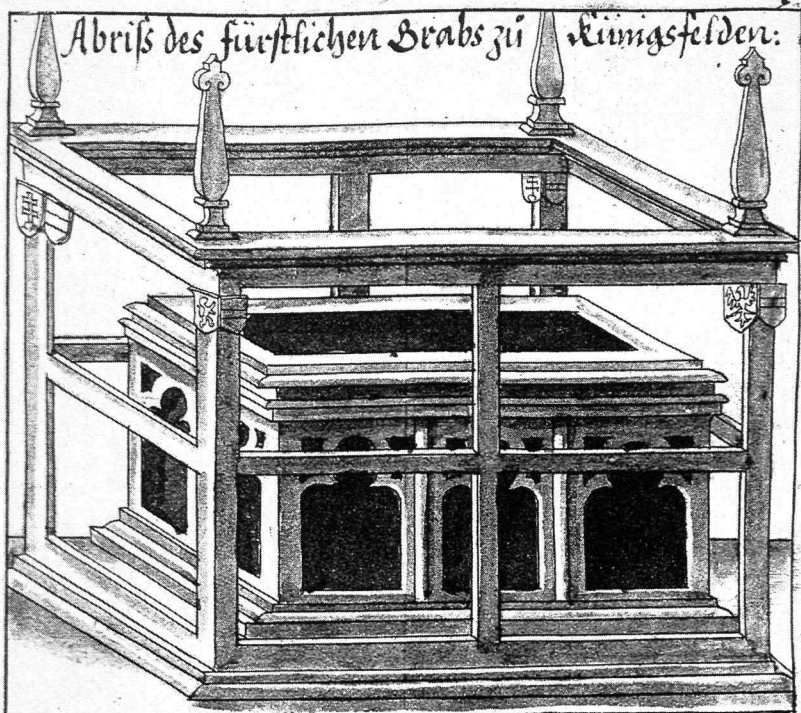 Abriſs des fürſtlichen Grabs zů Künigsfelden: